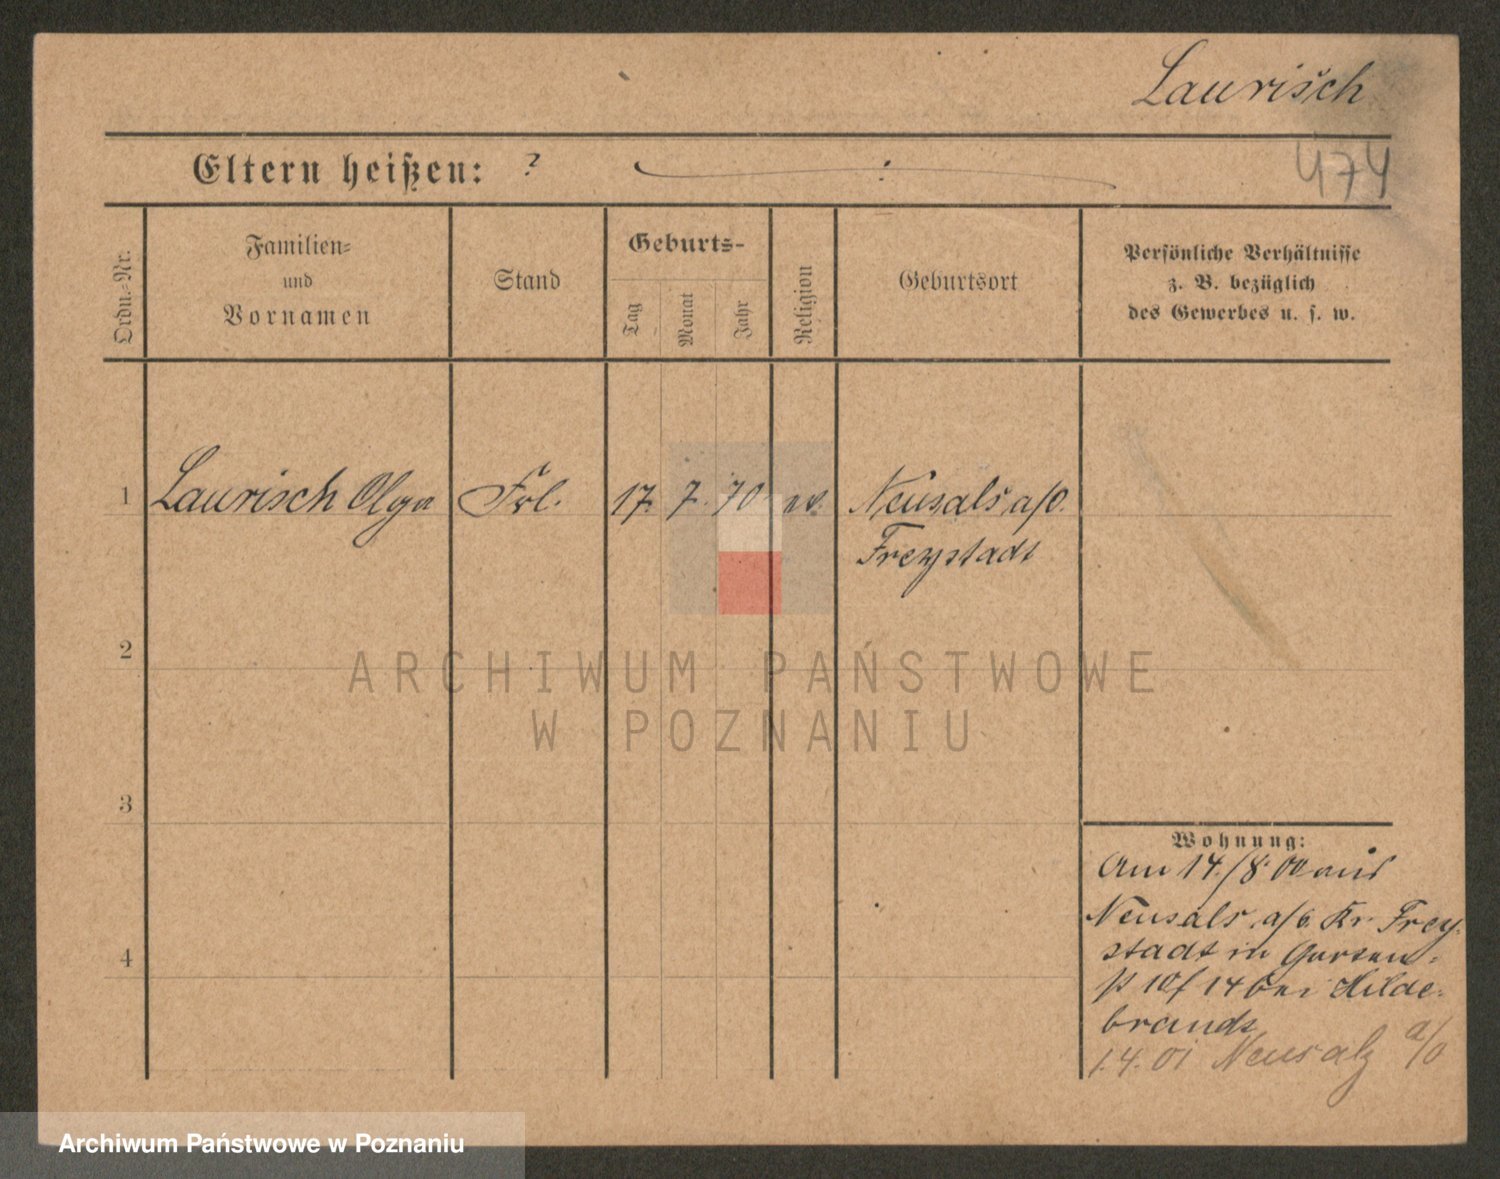 Laurisch
474
Eltern heißen: ?
Ordn.-Nr.
Familien-
und
Vornamen
Stand
Geburts-
Tag
Monat
Jahr
Religion
Geburtsort
Persönliche Verhältnisse
z. B. bezüglich
des Gewerbes u. s. w.
1 Laurisch Olga Frl. 17. 7. 70 Neusals a/O.
Freystadt
2
3
4
Wohnung:
Am 14./8. 00 aus
Neusals a/O. Kr. Frey-
stadt in
14 bei Hilde-
brandt
1.4.01 Neusalz a/O
ARCHIWUM PAŃSTWOWE
W POZNANIU
Archiwum Państwowe w Poznaniu